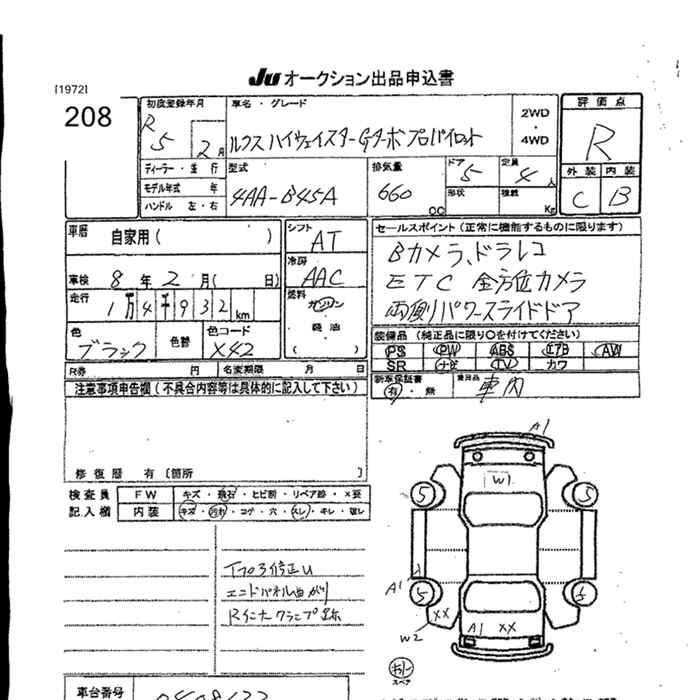 [1972]
JU オークション出品申込書
208
初度登録年月
R5 2月
車名・グレード
ルクス ハイウェイスターGターボプロパイロット
2WD
・
4WD
評価点
R
外装 内装
C B
ディーラー・並行
モデル年式 年
ハンドル 左・右
型式
4AA-B45A
排気量
660 CC
ドア
5
定員
4人
形状
積載
Kg
車歴
自家用( )
車検 8年2月( 日)
走行
1万4千932km
色
ブラック
色替
色コード
X42
シフト
AT
冷房
AAC
燃料
ガソリン
軽油
( )
セールスポイント(正常に機能するものに限ります)
Bカメラ、ドラレコ
ETC 全方位カメラ
両側パワースライドドア
装備品(純正品に限り○を付けてください)
PS PW ABS エアB AW
SR ナビ TV カワ
新車保証書
有・無
車内
R券 円 名変期限 月 日
注意事項申告欄(不具合内容等は具体的に記入して下さい)
修復歴 有[箇所 ]
検査員
記入欄
FW キズ・飛石・ヒビ割・リペア跡・X要
内装 キズ・汚れ・コゲ・穴・スレ・キレ・破レ
エンドパネル曲がり
Rインナクランプ跡
A1
W1
5 5
A1
5 5
XX
W2
A1 XX
スペア
車台番号